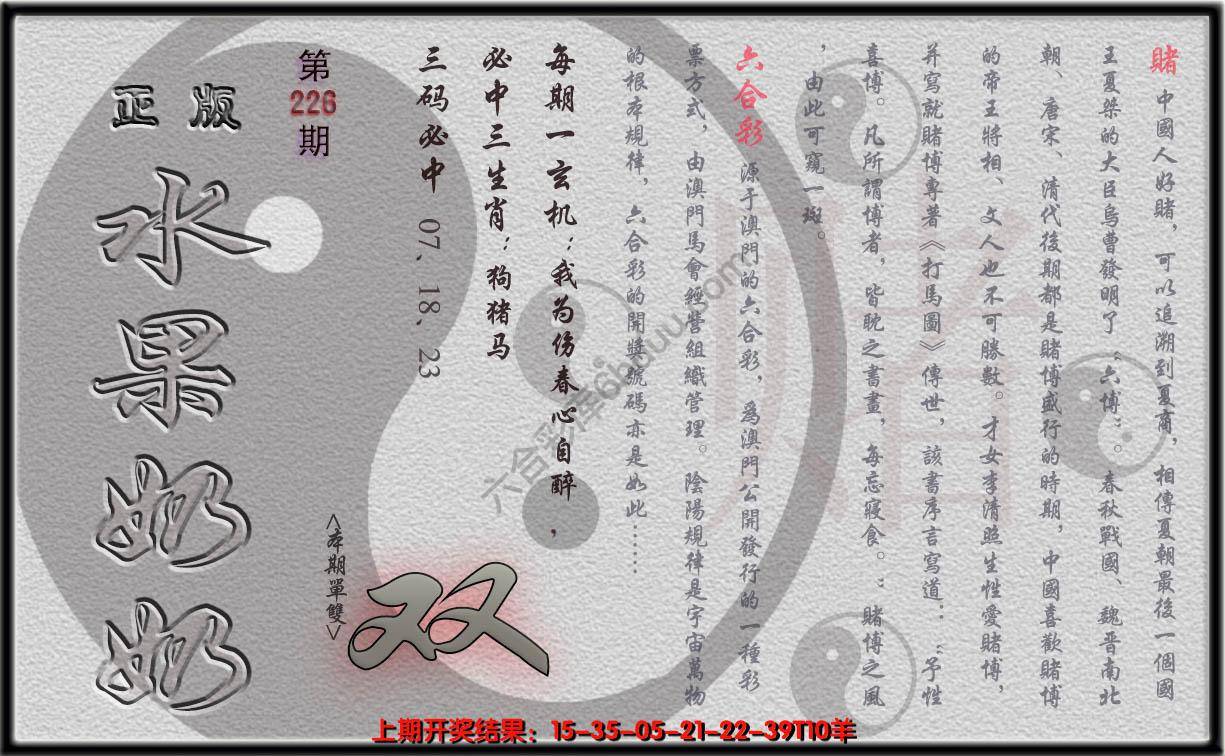 賭 中國人好賭，可以追溯到夏商，相傳夏朝最後一個國
王夏桀的大臣烏曹發明了“六博”。春秋戰國、魏晋南北
朝、唐宋、清代後期都是賭博盛行的時期，中國喜歡賭博
的帝王將相、文人也不可勝數。才女李清照生性愛賭博，
并寫就賭博專著《打馬圖》傳世，該書序言寫道：“予性
喜博。凡所謂博者，皆耽之書畫，每忘寢食。”賭博之風
，由此可窺一斑。
六合彩 源于澳門的六合彩，為澳門公開發行的一種彩
票方式，由澳門馬會經營組織管理。陰陽規律是宇宙萬物
的根本規律，六合彩的開獎號碼亦是如此……
每期一玄机：我为伤春心自醉，
必中三生肖：狗猪马
三码必中 07.18.23
第
226
期
正版
水果奶奶
<本期單雙>
双
六合彩库6huuu.com
上期开奖结果：15-35-05-21-22-39T10羊